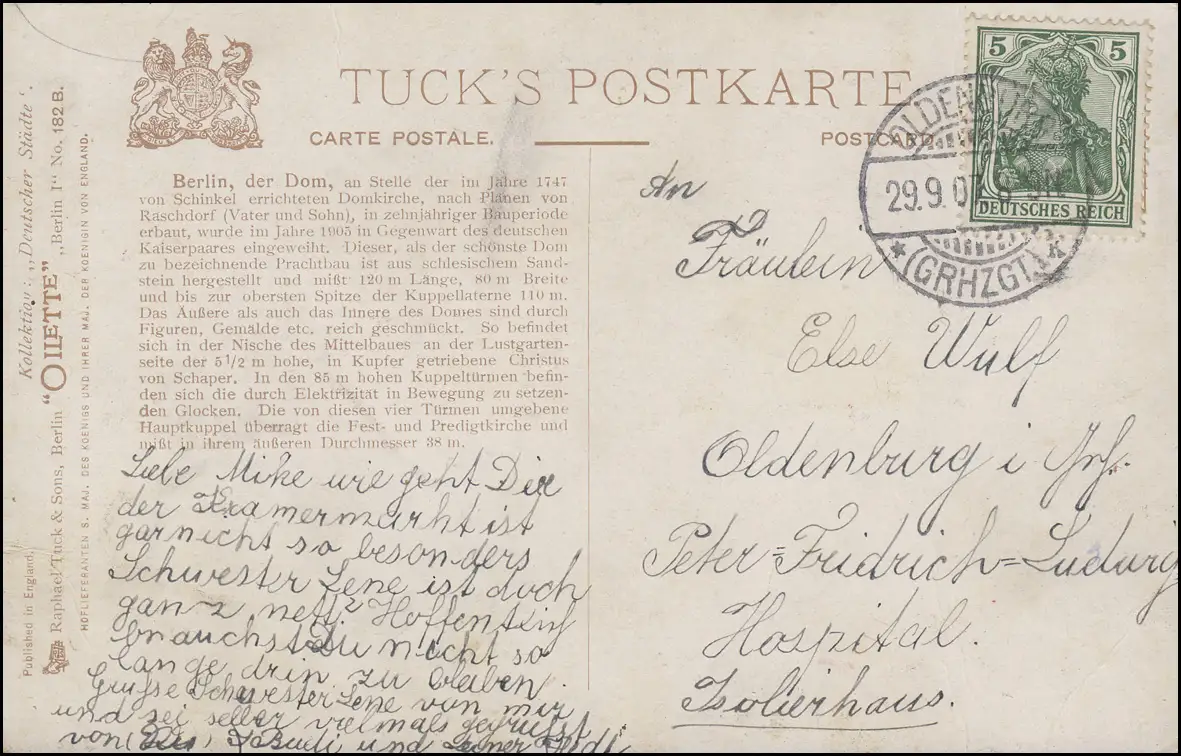 TUCK'S POSTKARTE
CARTE POSTALE.
POSTCARD.
Kollektion: „Deutscher Städte‘.
Raphael Tuck & Sons, Berlin "OILETTE" „Berlin I“ No. 182 B.
HOFLIEFERANTEN S. MAJ. DES KOENIGS UND IHRER MAJ. DER KOENIGIN VON ENGLAND.
Published in England.
Berlin, der Dom, an Stelle der im Jahre 1747
von Schinkel errichteten Domkirche, nach Plänen von
Raschdorf (Vater und Sohn), in zehnjähriger Bauperiode
erbaut, wurde im Jahre 1905 in Gegenwart des deutschen
Kaiserpaares eingeweiht. Dieser, als der schönste Dom
zu bezeichnende Prachtbau ist aus schlesischem Sand-
stein hergestellt und mißt 120 m Länge, 80 m Breite
und bis zur obersten Spitze der Kuppellaterne 110 m.
Das Äußere als auch das Innere des Domes sind durch
Figuren, Gemälde etc. reich geschmückt. So befindet
sich in der Nische des Mittelbaues an der Lustgarten-
seite der 5½ m hohe, in Kupfer getriebene Christus
von Schaper. In den 85 m hohen Kuppeltürmen befin-
den sich die durch Elektrizität in Bewegung zu setzen-
den Glocken. Die von diesen vier Türmen umgebene
Hauptkuppel überragt die Fest- und Predigtkirche und
mißt in ihrem äußeren Durchmesser 38 m.
Liebe Mike wie geht Dir
der Kramermarkt ist
garnicht so besonders
Schwester Lene ist doch
ganz nett? Hoffentlich
brauchst Du nicht so
lange drin zu bleiben.
Grüsse Schwester Lene von mir
und sei selber vielmals gegrüsst
von und
5 5
DEUTSCHES REICH
OLDENBURG
29.9.07
* (GRHZGT.) *
An
Fräulein
Else Wulf
Oldenburg i Grh.
Peter=Fridrich=Ludwig
Hospital.
Isolierhaus.